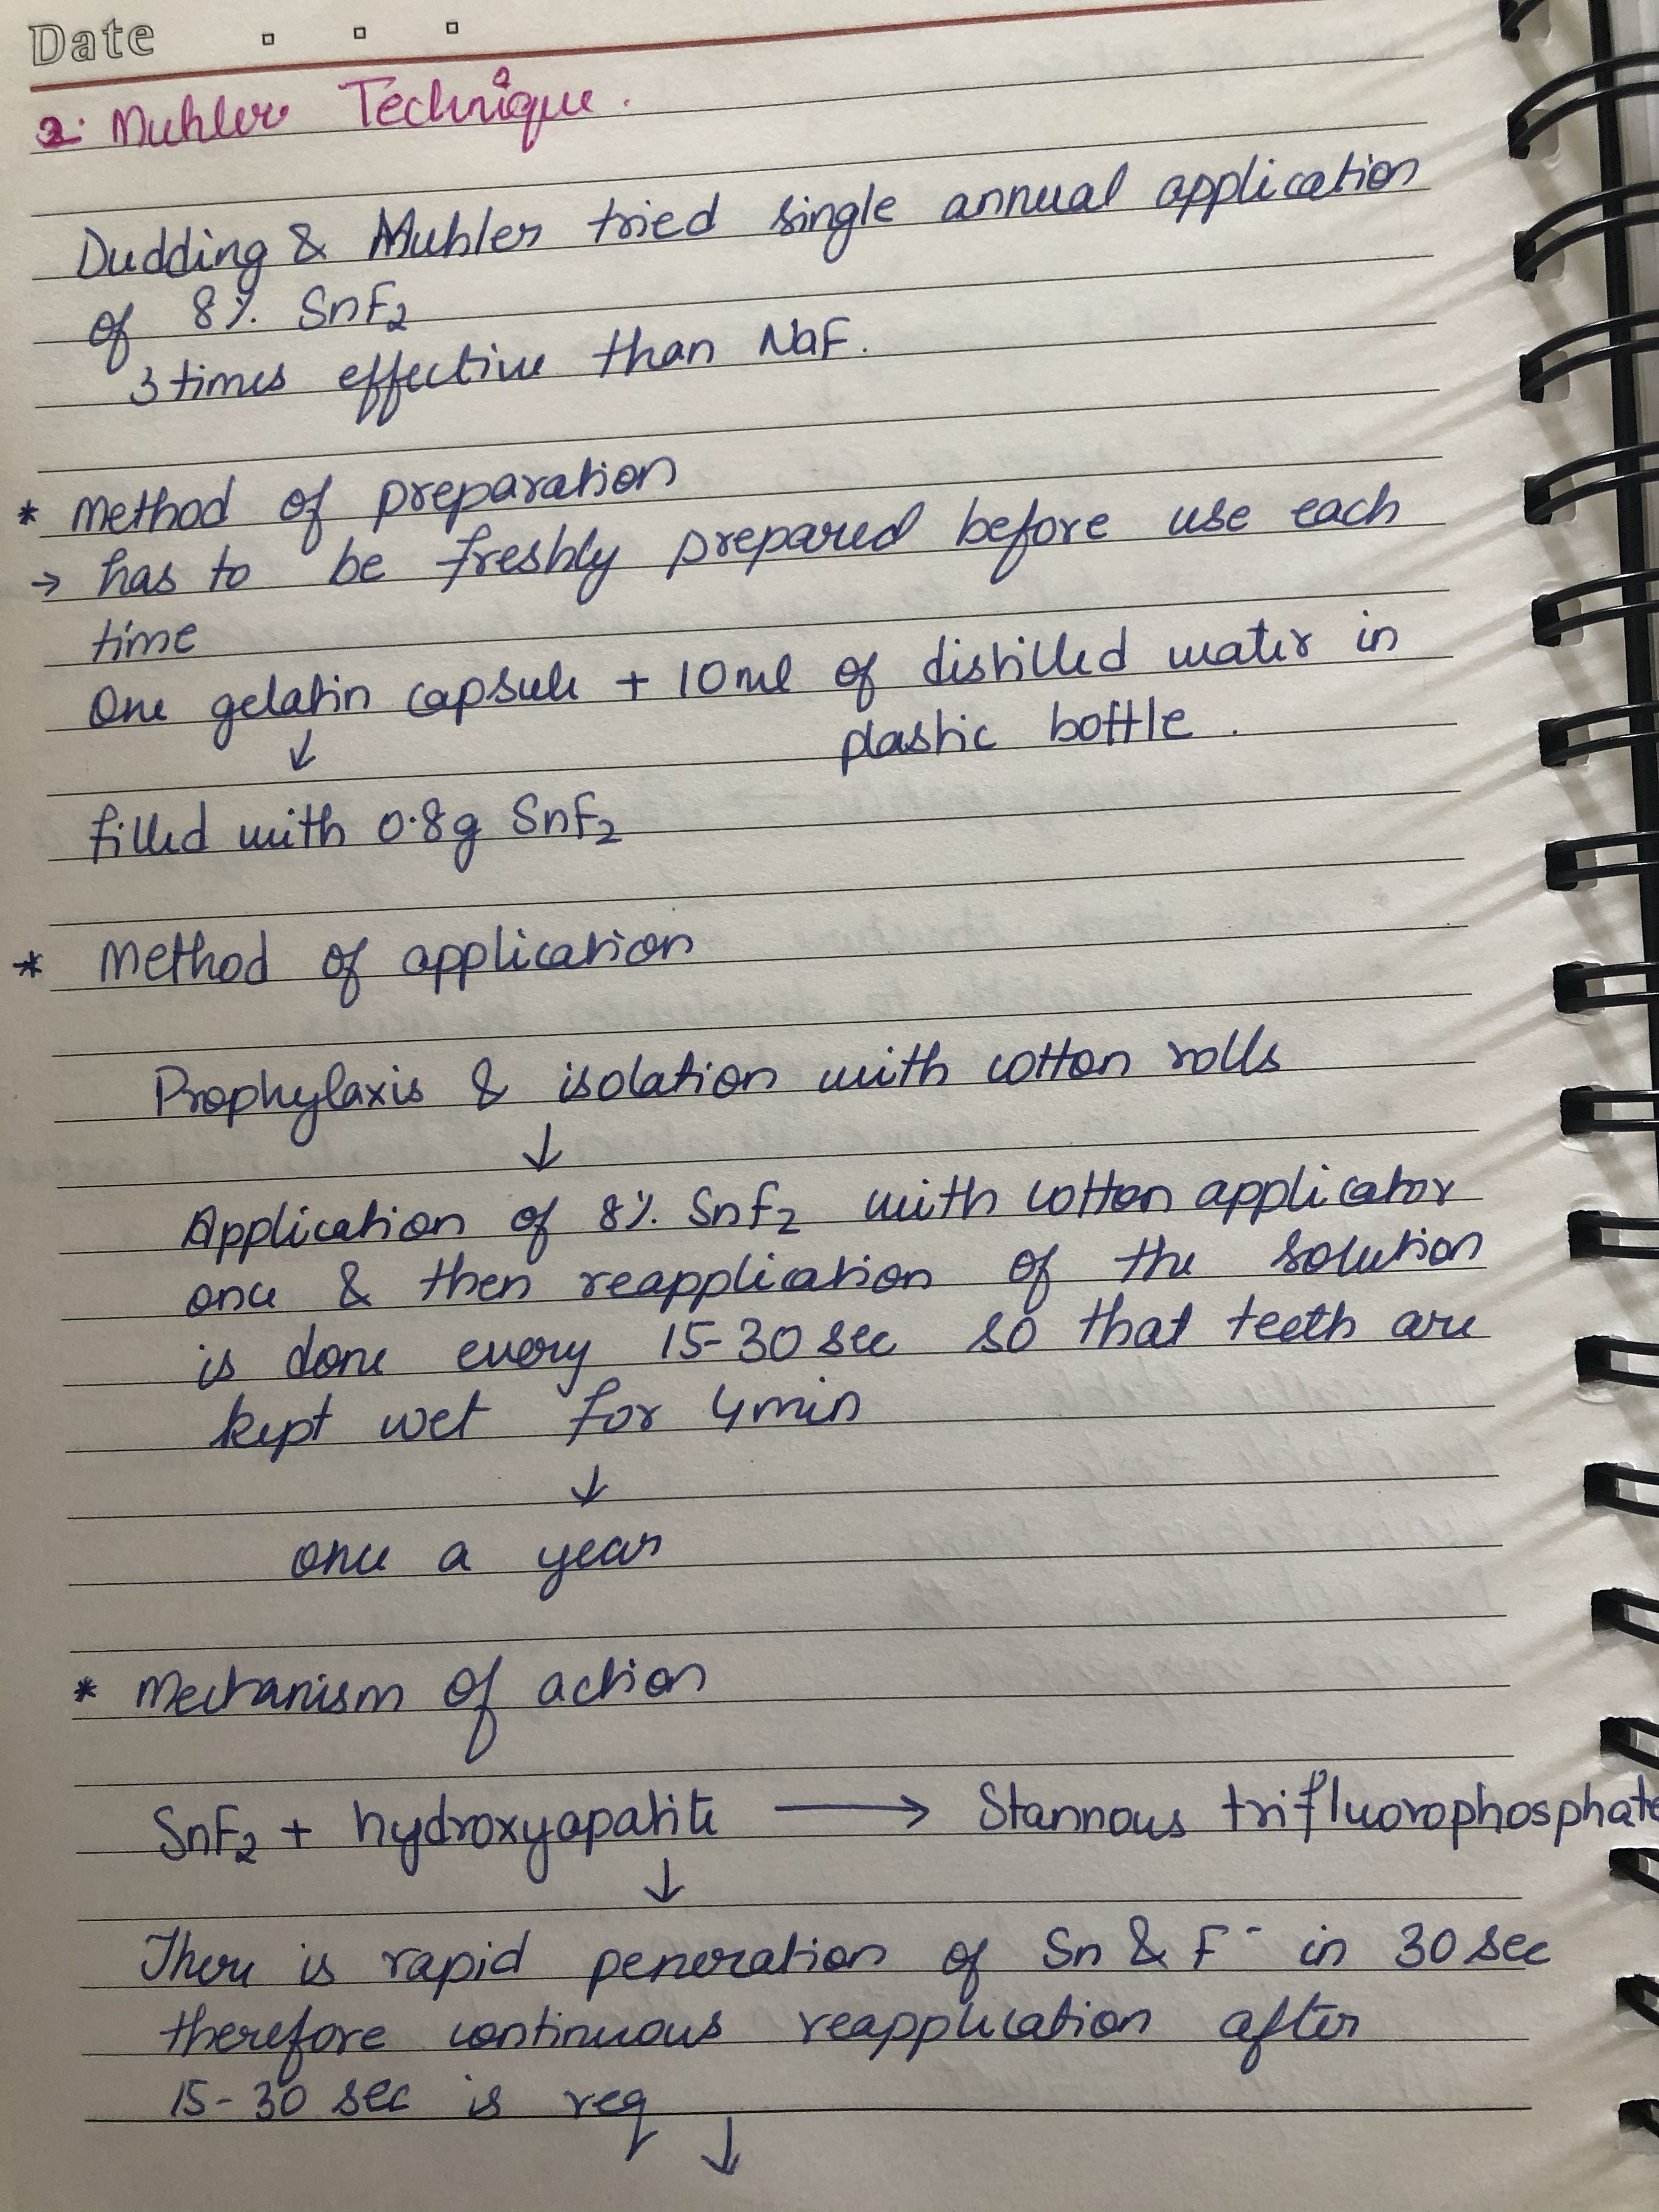 Date
2. Muhler Technique.
Dudding & Muhler tried single annual application
of 8% SnF₂
3 times effective than NaF.
* Method of preparation
→ has to be freshly prepared before use each
time
One gelatin capsule + 10ml of distilled water in
↓ plastic bottle.
filled with 0.8g SnF₂
* Method of application
Prophylaxis & isolation with cotton rolls
↓
Application of 8% SnF₂ with cotton applicator
once & then reapplication of the solution
is done every 15-30 sec so that teeth are
kept wet for 4min
↓
once a year
* Mechanism of action
SnF₂ + hydroxyapatite → Stannous trifluorophosphate
↓
There is rapid peneration of Sn & F⁻ in 30 sec
therefore continuous reapplication after
15-30 sec is req
↓